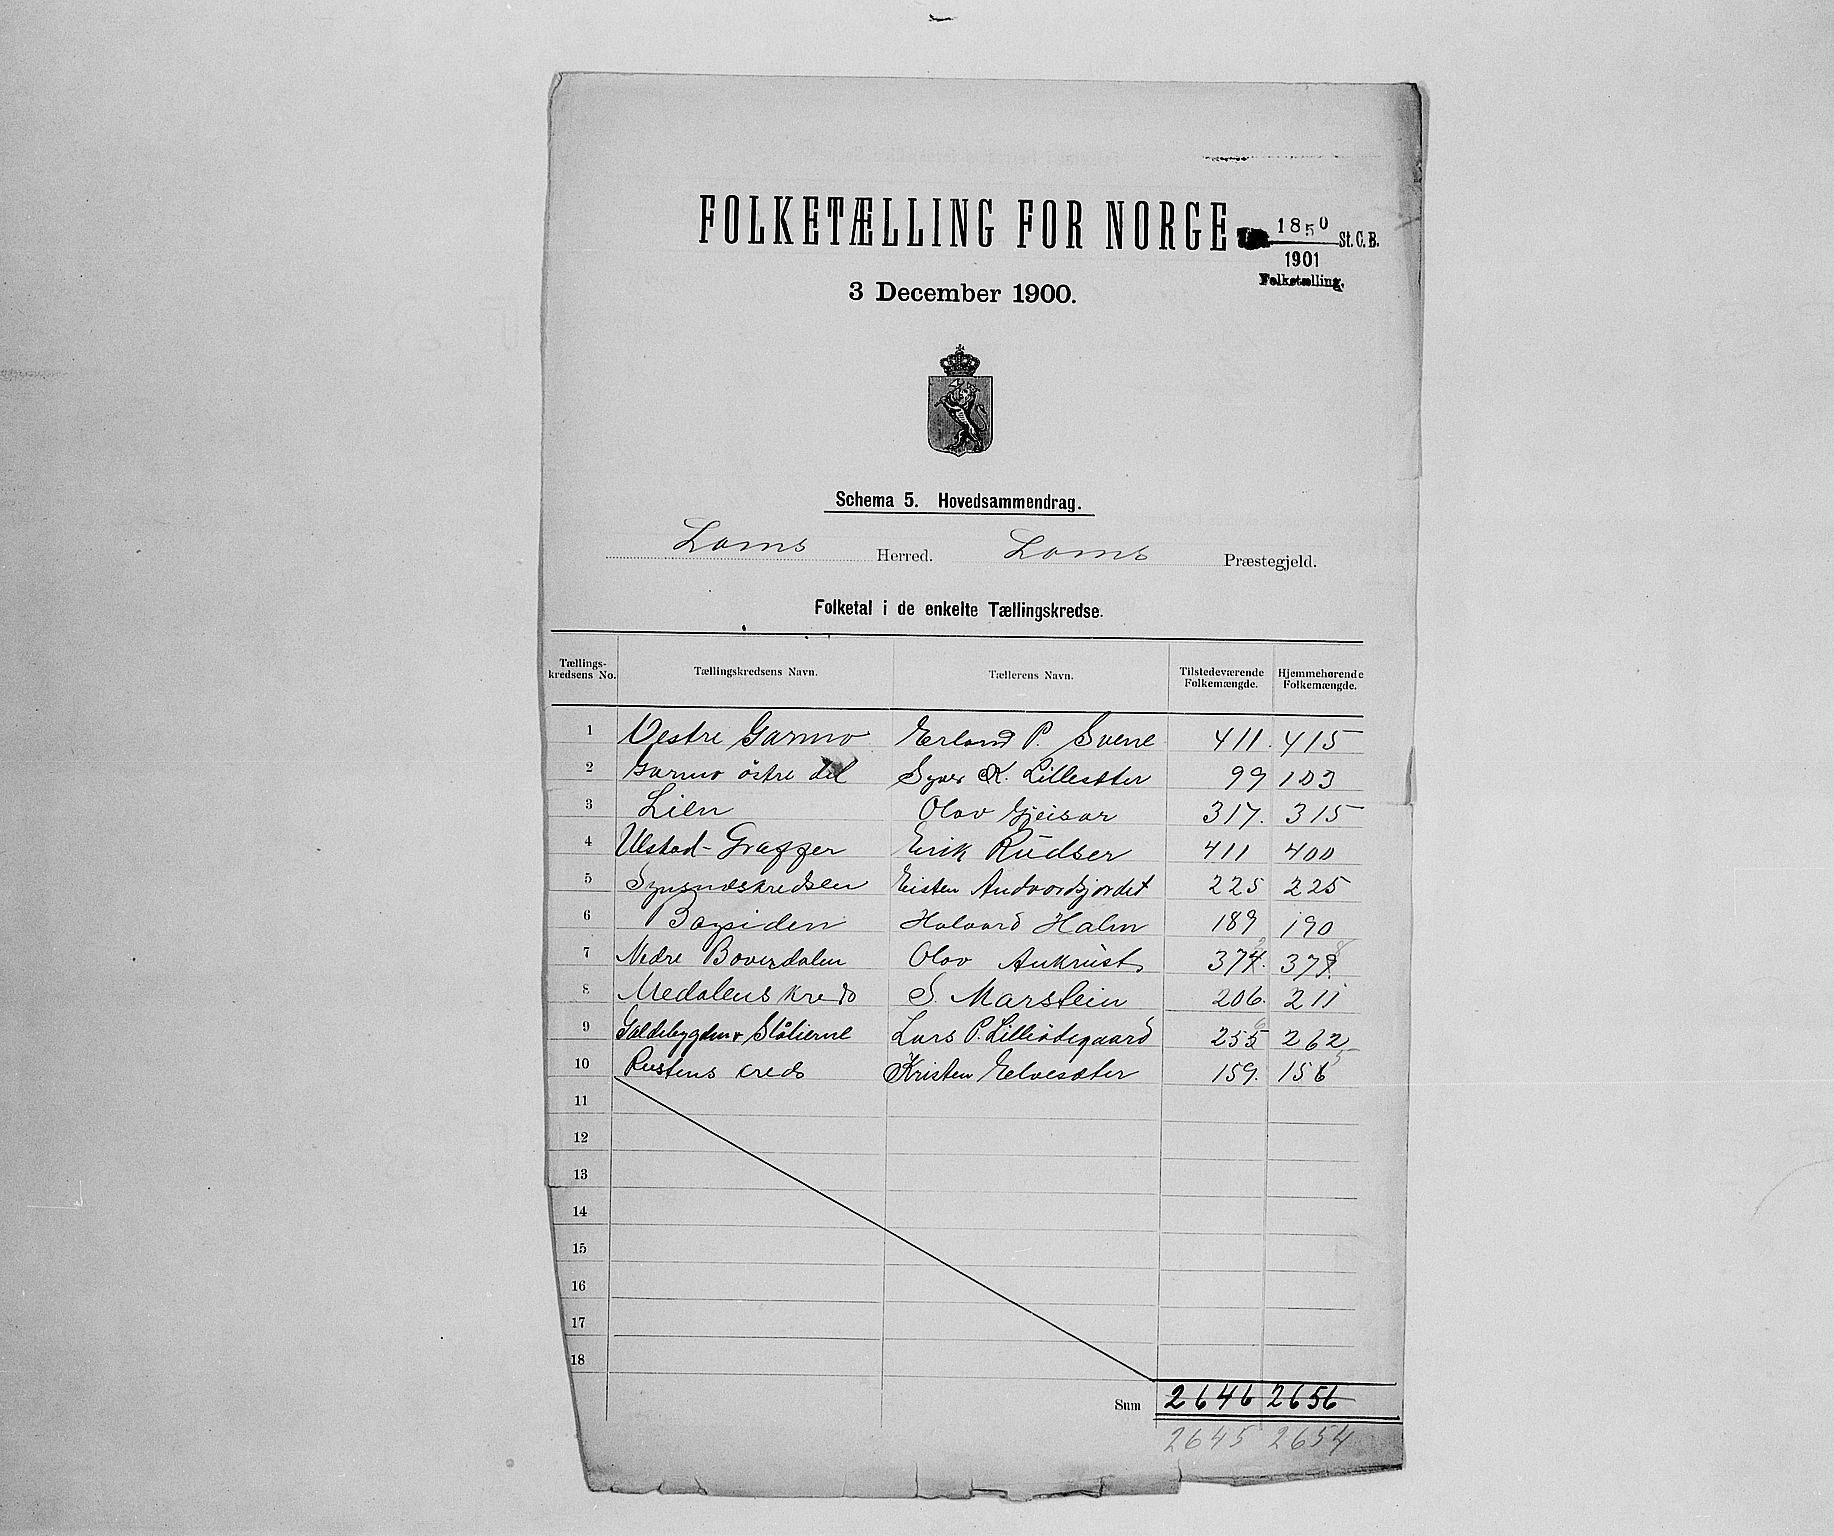 FOLKETÆLLING FOR NORGE
1850 St. C. B.
1901
Folketælling.
3 December 1900.
Schema 5. Hovedsammendrag.
Loms Herred. Loms Præstegjeld.
Folketal i de enkelte Tællingskredse.
Tællings-kredsens No. Tællingskredsens Navn. Tællerens Navn. Tilstedeværende Folkemængde. Hjemmehørende Folkemængde.
1 Vestre Garmo Erland P. Svene 411. 415
2 Garmo östre del Syver K. Lillesæter 99 103
3 Lien Olav Gjeisar 317. 315
4 Ulstad-Graffer Eirik Rudser 411 400
5 Synsnæskredsen Eisten Andvordsjordet 225 225
6 Bøysiden Halvard Halm 189 190
7 Nedre Bøverdalen Olav Aukrust 374. 379
8 Medalens kreds S. Marstein 206. 211
9 Galdebygden + Ståtierne Lars P. Lilleødegaard 255 262
10 Rustens kreds Kristen Elvesæter 159. 156
11
12
13
14
15
16
17
18
Sum 2646 2656
2645 2654